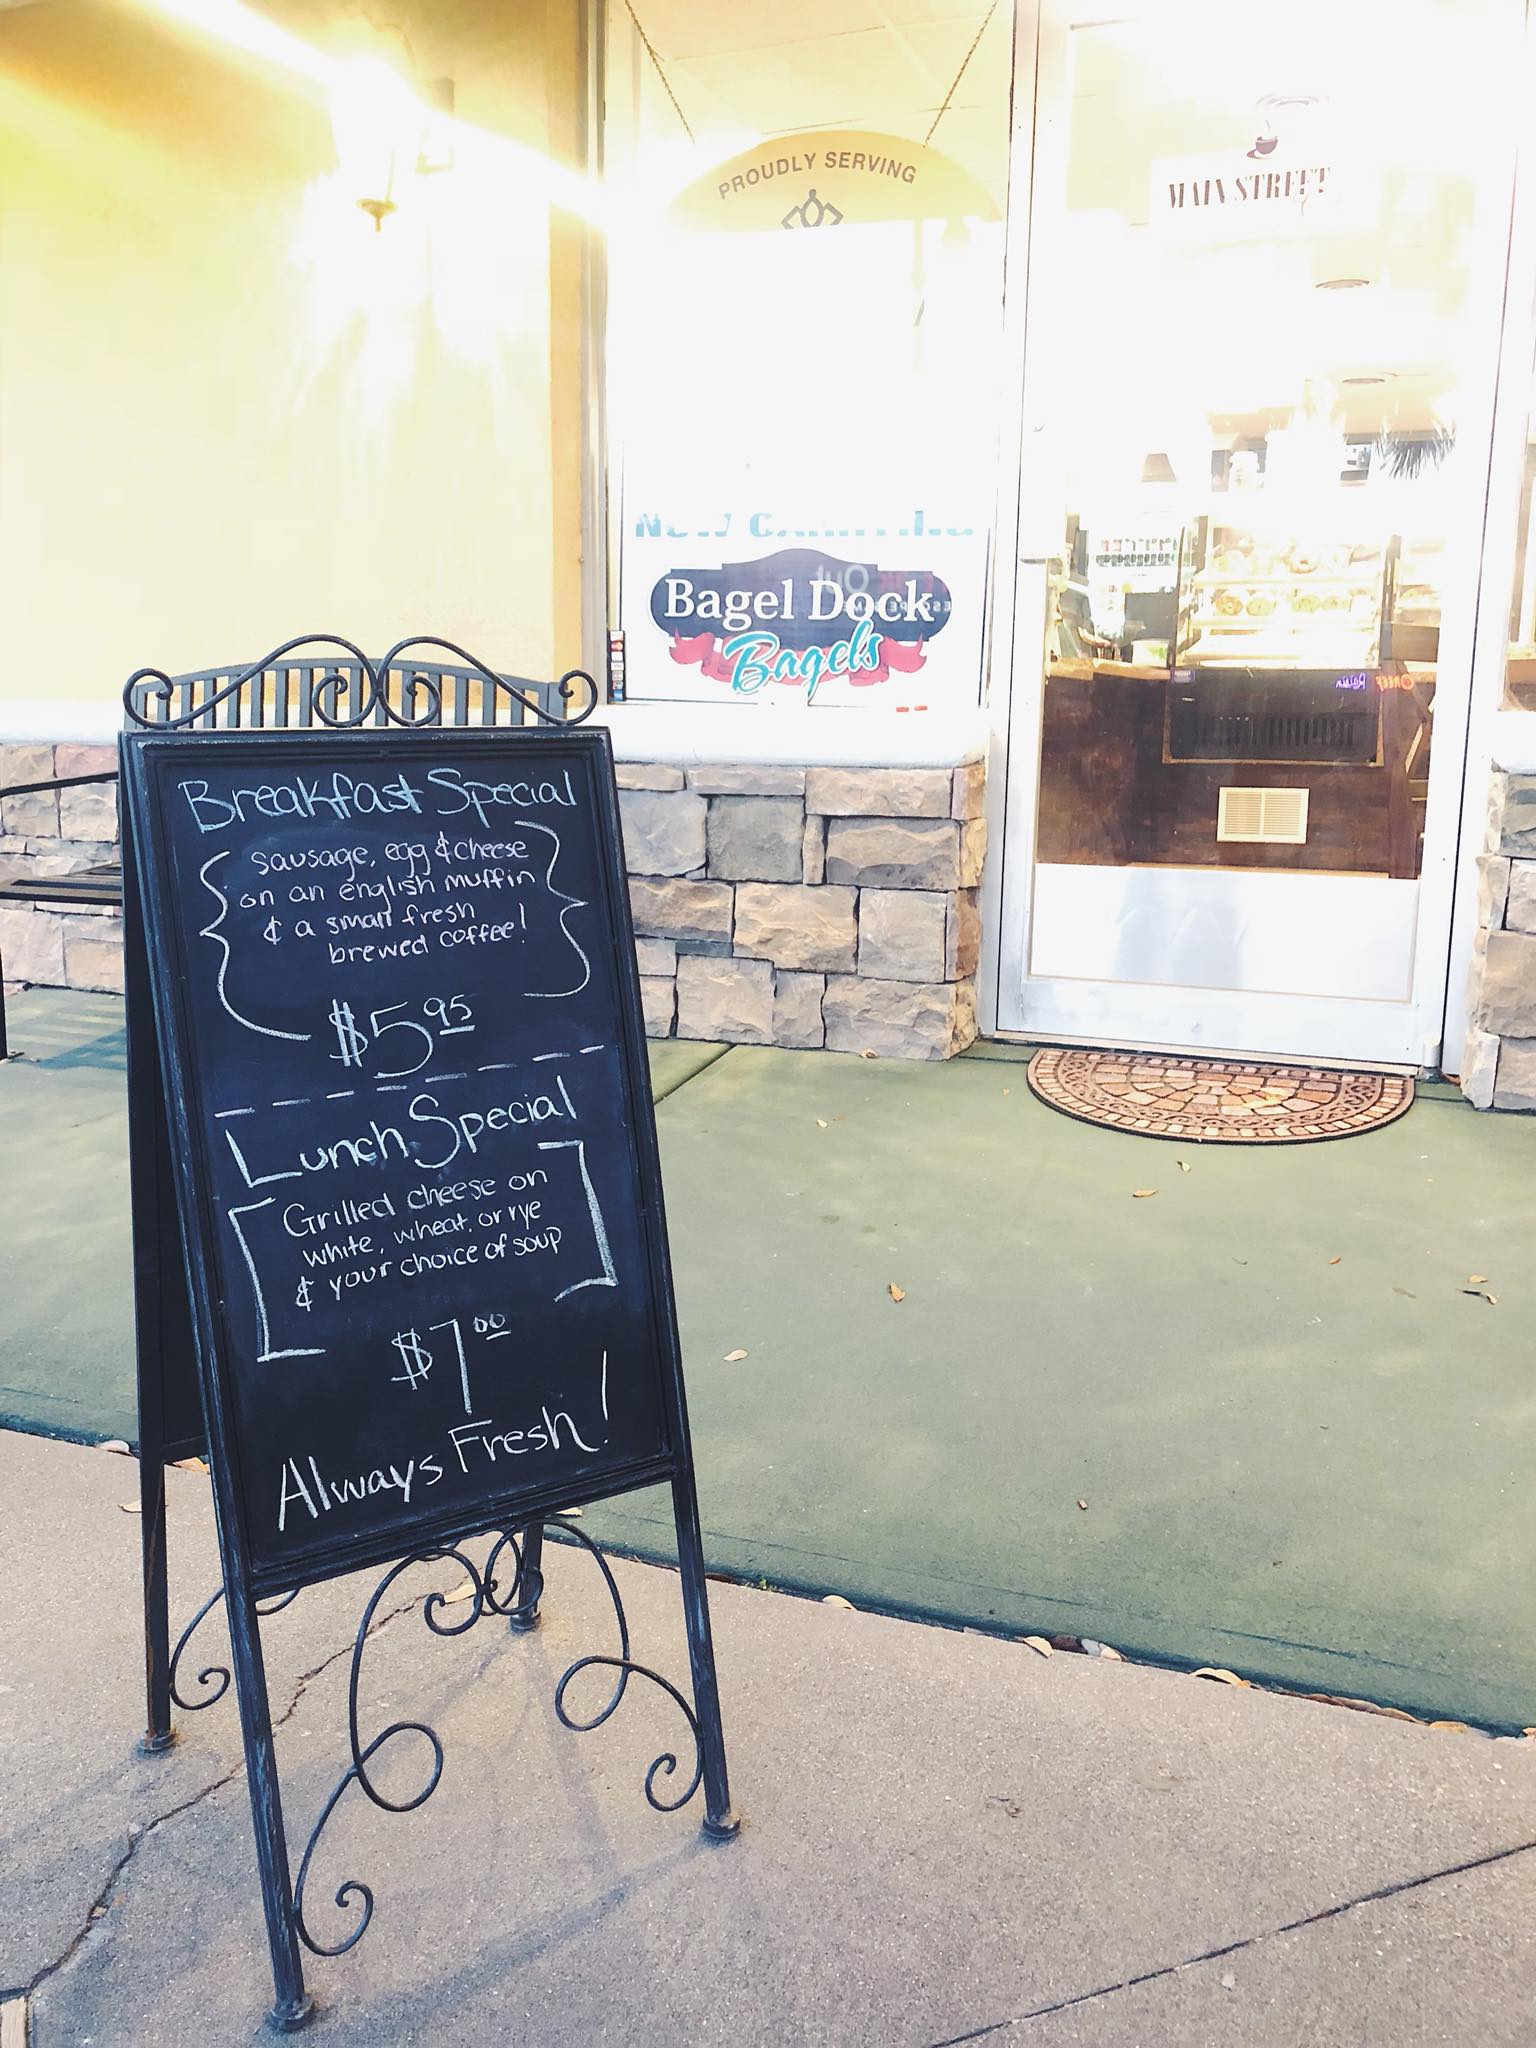 PROUDLY SERVING
MAIN STREET
Bagel Dock
Bagels
Breakfast Special
sausage, egg & cheese
on an english muffin
& a small fresh
brewed coffee!
$5.95
Lunch Special
Grilled cheese on
white, wheat, or rye
& your choice of soup
$7.00
Always Fresh!